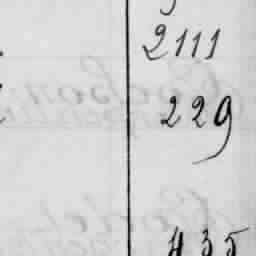 2111
229
435